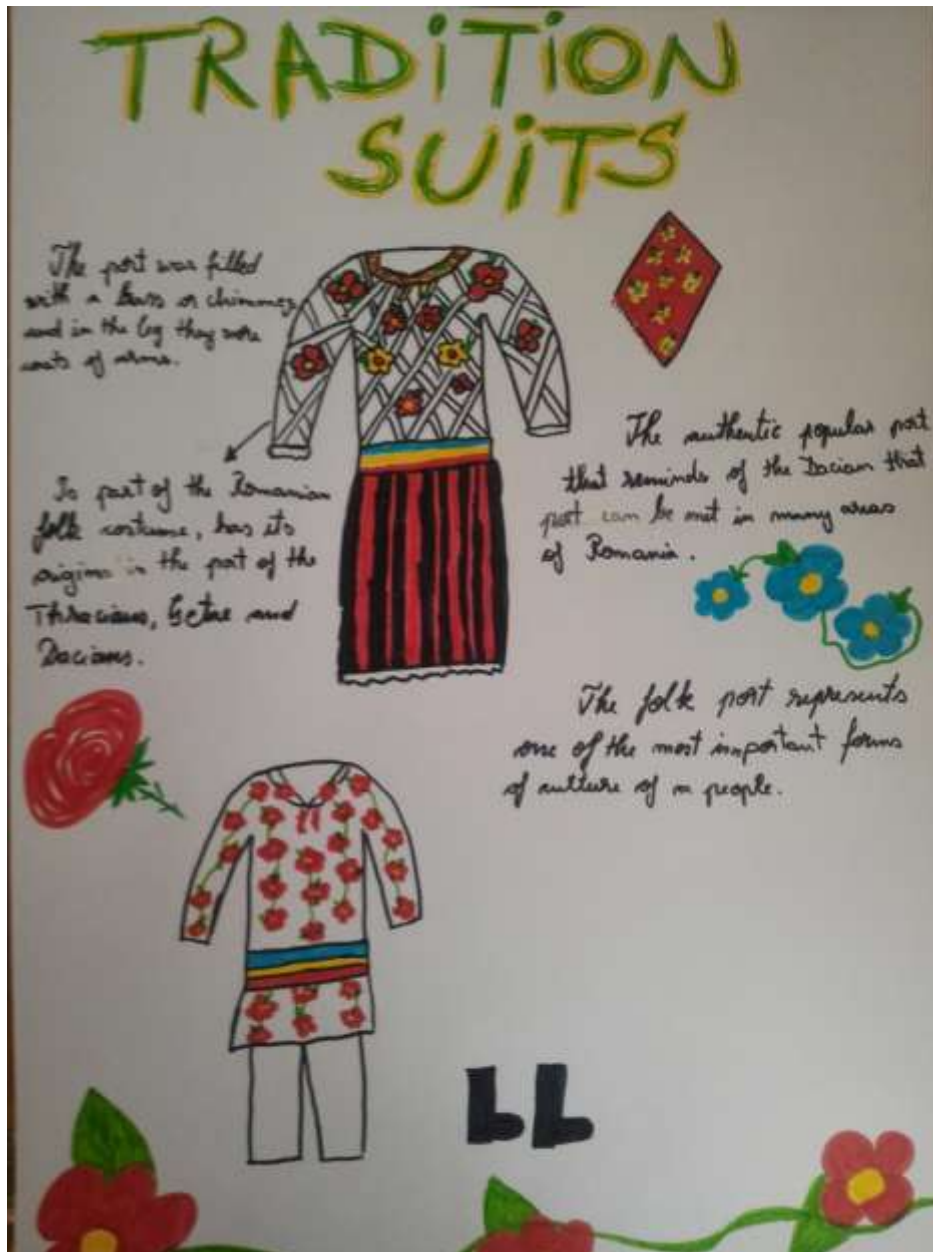 TRADiTiON
SUiTS
The port was filled
with a bass or chimney
and in the leg they wore
coats of arms.
Is part of the Romanian
folk costume, has its
origins in the port of the
Thracians, Getae and
Dacians.
The authentic popular port
that reminds of the Dacian that
port can be met in many areas
of Romania.
The folk port represents
one of the most important forms
of culture of a people.